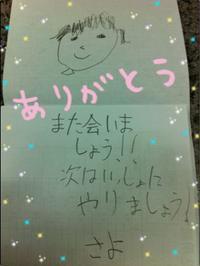 ありがとう
また会いま
しょう!!
次はいっしょに
やりましょう!
さよ